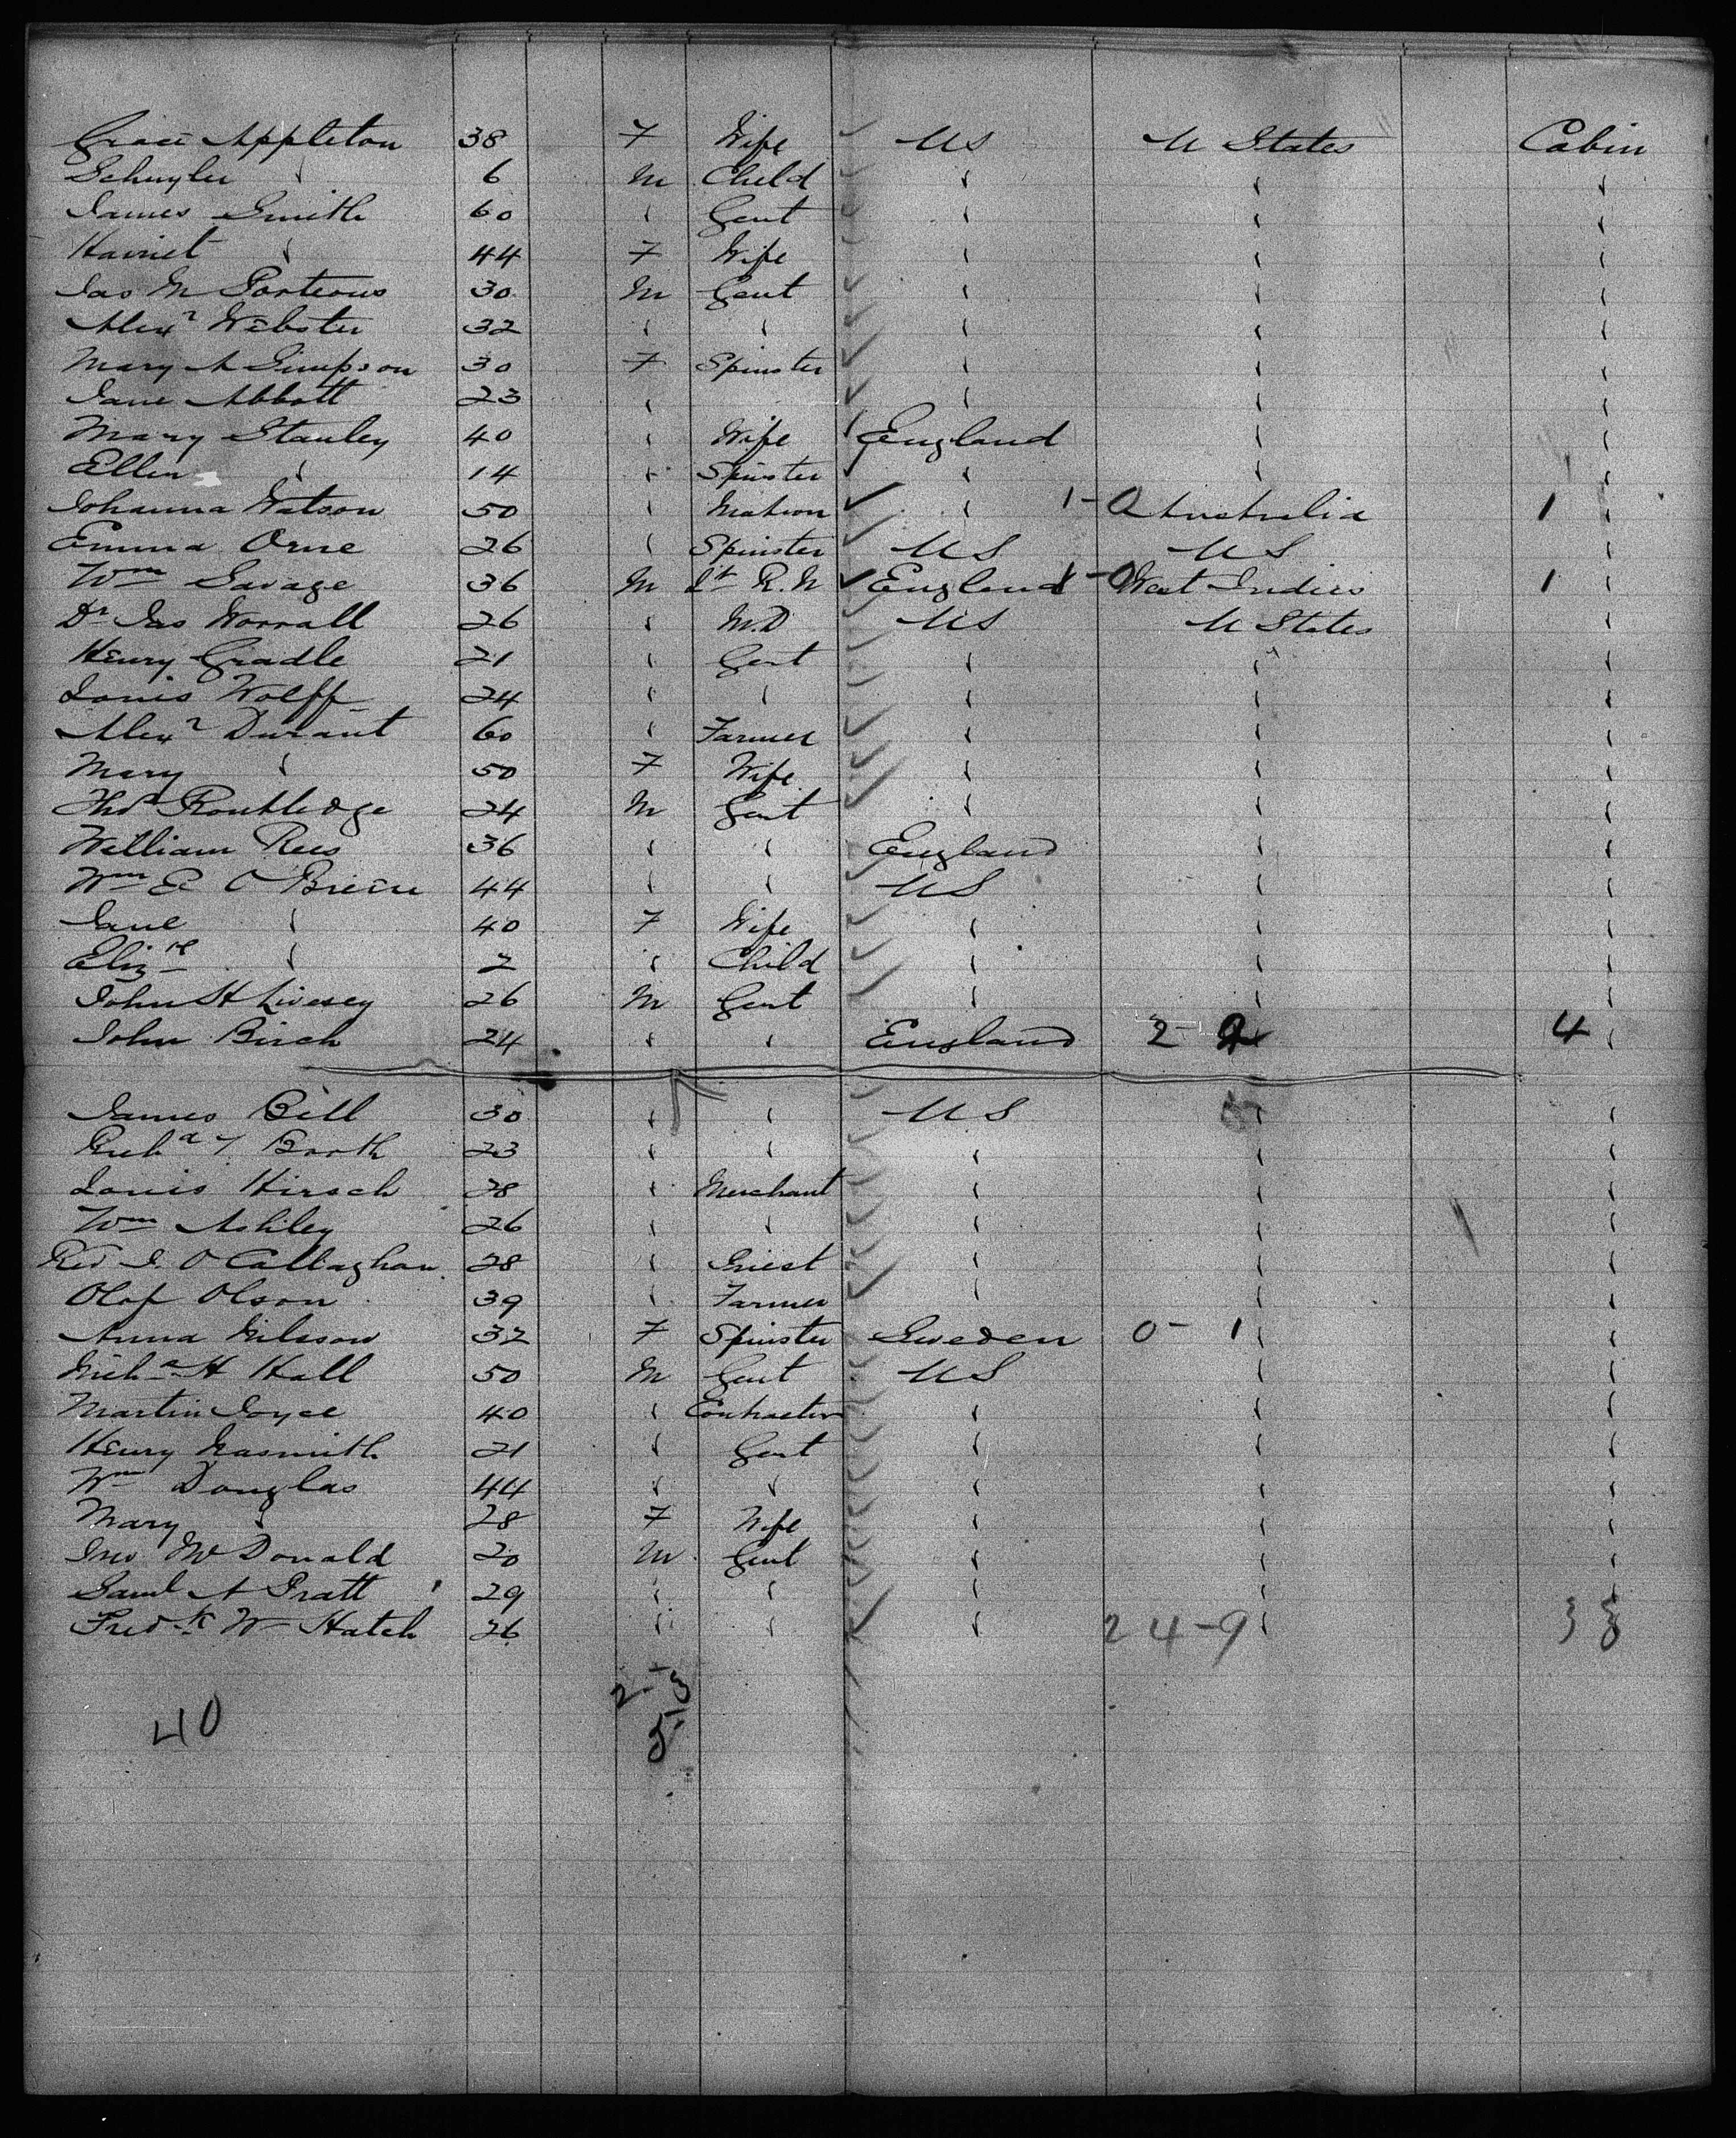 Grace Appleton 38 F Wife US U States Cabin
Schuyler " 6 M Child " " "
James Smith 60 " Gent " " "
Harriet " 44 F Wife " " "
Jas M Porteous 30 M Gent " " "
Alexr Webster 32 " " " " "
Mary A Simpson 30 F Spinster " " "
Jane Abbott 23 " " " "
Mary Stanley 40 " Wife England " "
Ellen " 14 " Spinster " " "
Johanna Watson 50 " Matron " 1-0 Australia 1 "
Emma Orne 26 " Spinster US US "
Wm Savage 36 M Lt R.N England 1-0 West Indies 1 "
Dr Jas Worrall 26 " M.D US U States "
Henry Gradle 21 " Gent " " "
Louis Wolff 24 " " " " "
Alexr Durant 60 " Farmer " " "
Mary " 50 F Wife " " "
Thos Routledge 24 M Gent " " "
William Rees 36 " " England " "
Wm E O Brien 44 " " US " "
Jane " 40 F Wife " " "
Elizth " 2 " Child " " "
John H Livesey 26 M Gent " " "
John Birch 24 " " England 2- 2 " 4 "
James Bell 30 " " US " "
Richd T Booth 23 " " " " "
Louis Hirsch 28 " Merchant " " "
Wm Ashley 26 " " " " "
Rev J. O Callaghan 28 " Priest " " "
Olof Olson 39 " Farmer " " "
Anna Nilsson 32 F Spinster Sweden 0- 1 "
Richd H Hall 50 M Gent US " "
Martin Joyce 40 " Contractor " " "
Henry Nasmith 21 " Gent " " "
Wm Douglas 44 " " " " "
Mary " 28 F Wife " " "
Jno McDonald 20 M Gent " " "
Saml A Pratt 29 " " " " "
Fredk W Hatch 26 " " " 24-9 " 38
40